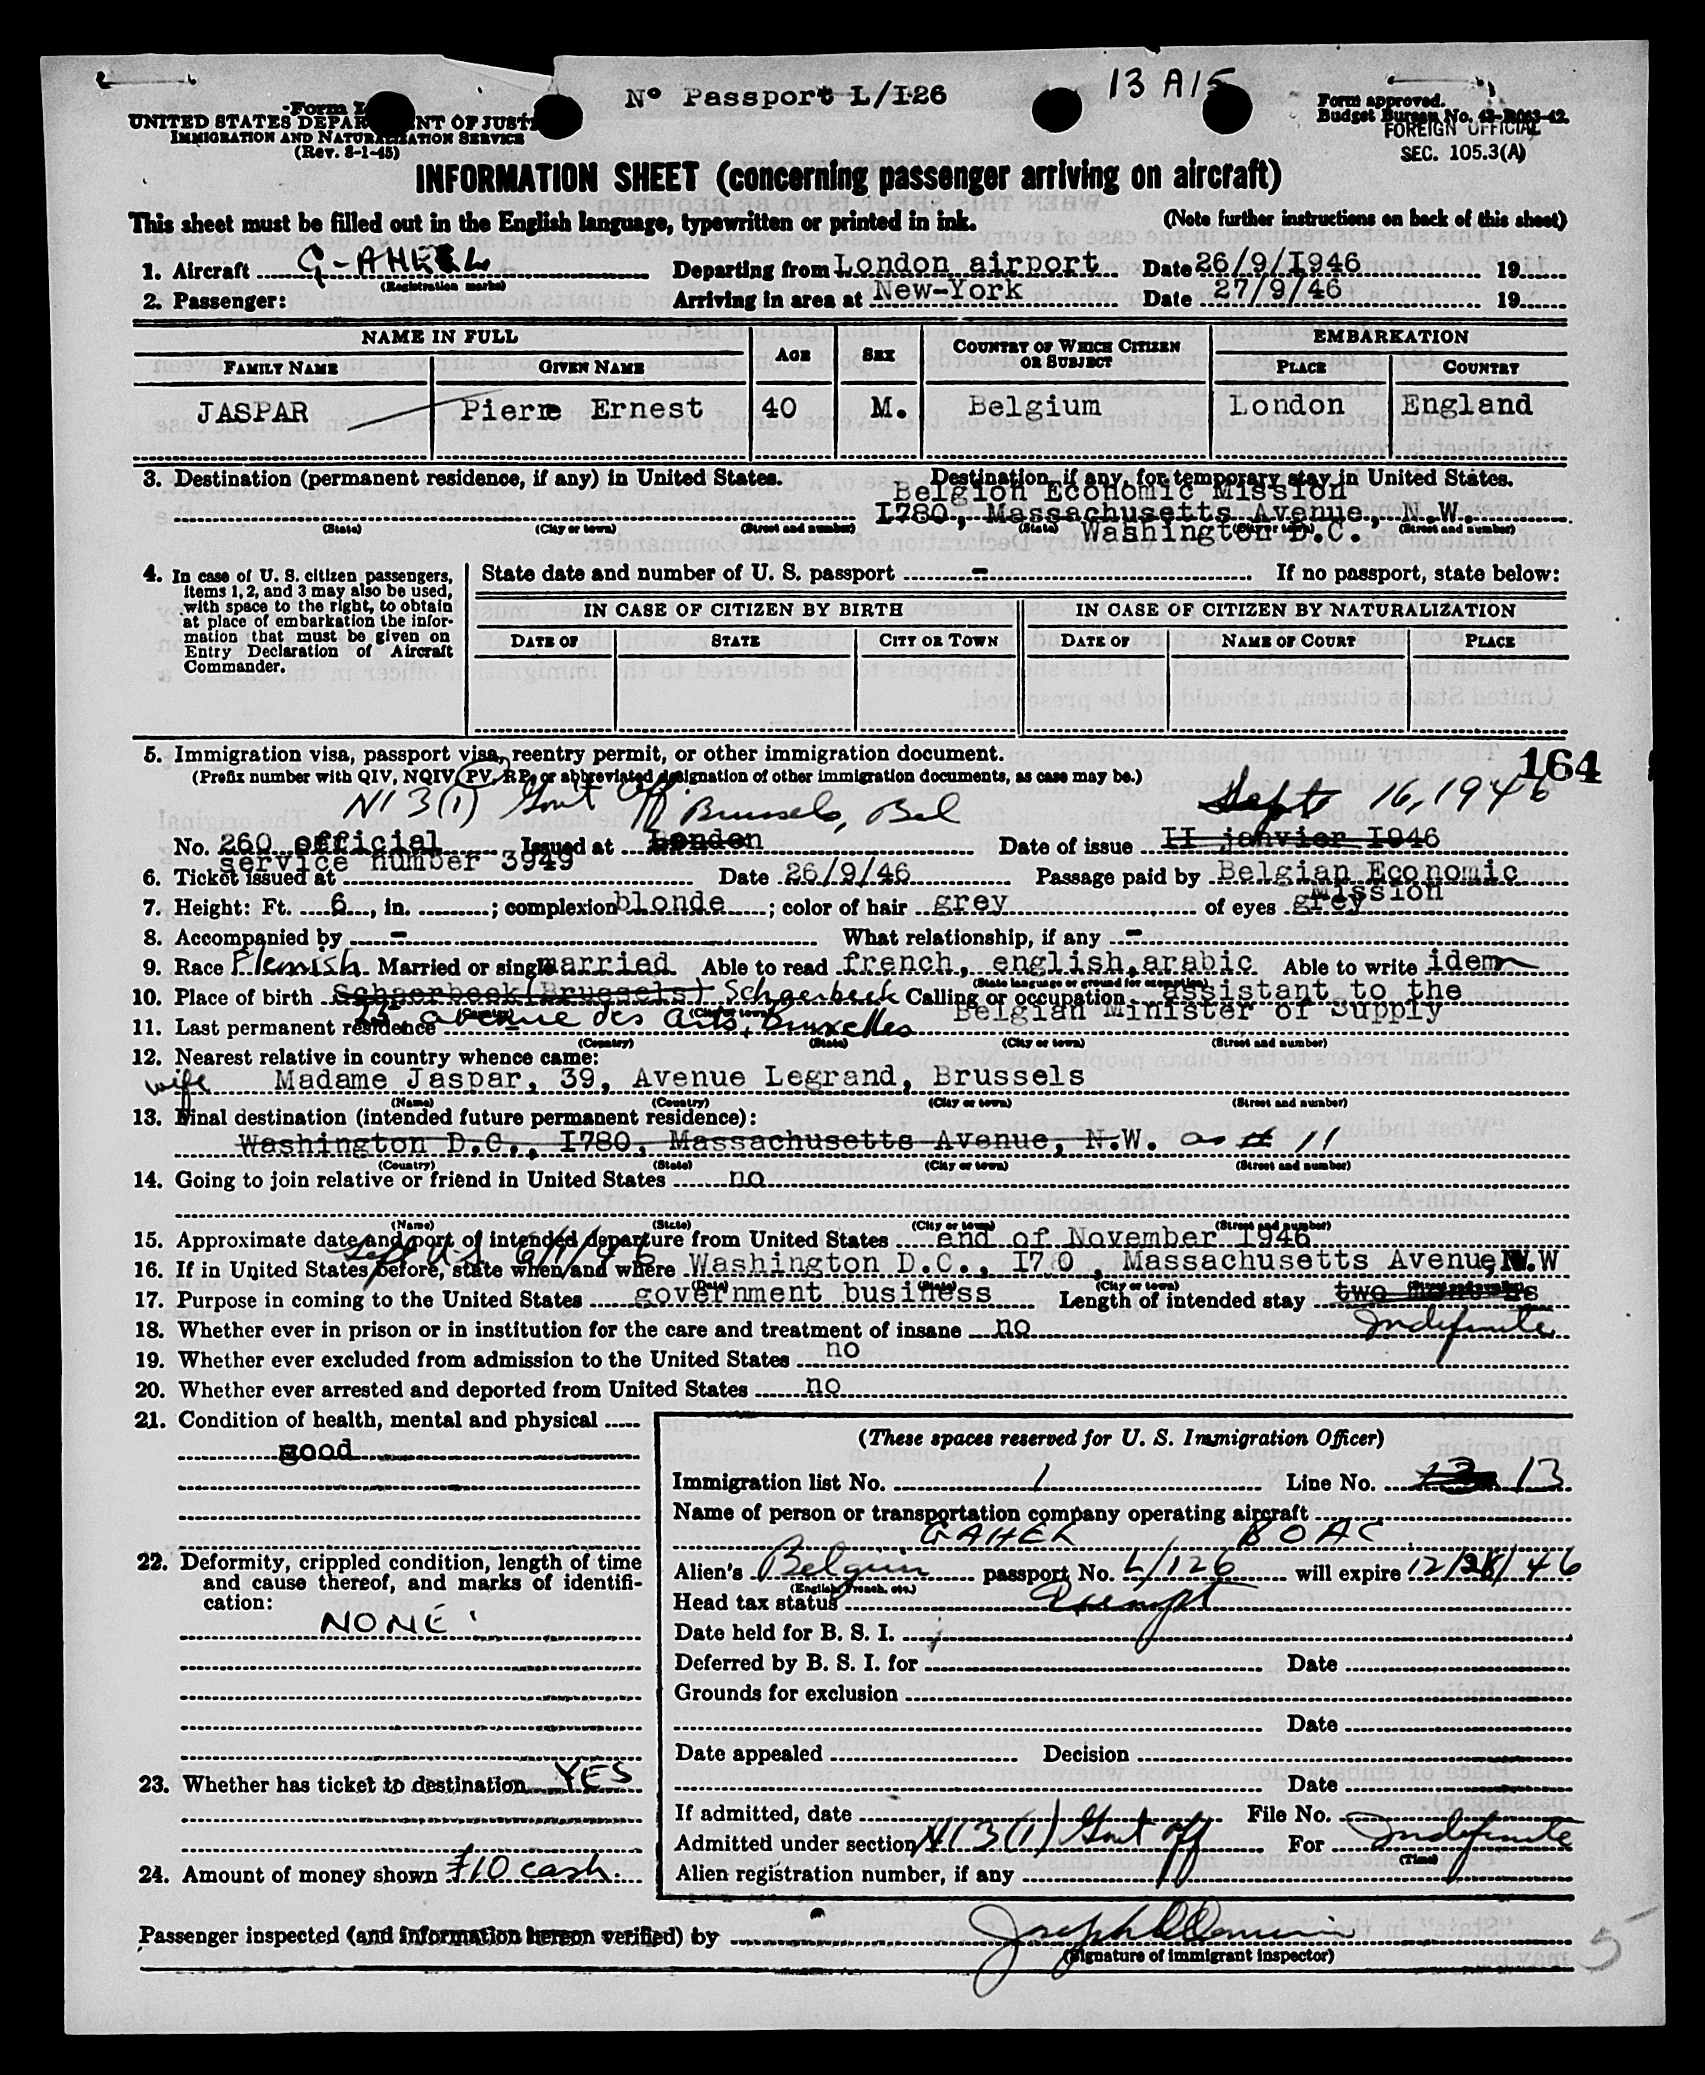 Nº Passport L/I26
13 A15
UNITED STATES DEPARTMENT OF JUSTICE
IMMIGRATION AND NATURALIZATION SERVICE
(Rev. 8-1-45)
Form approved.
Budget Bureau No. 43-R063-42.
FOREIGN OFFICIAL
SEC. 105.3(A)
INFORMATION SHEET (concerning passenger arriving on aircraft)
This sheet must be filled out in the English language, typewritten or printed in ink. (Note further instructions on back of this sheet)
1. Aircraft Departing from London airport Date 26/9/I946 19
(Registration marks)
2. Passenger: Arriving in area at New-York Date 27/9/46 19
NAME IN FULL AGE SEX COUNTRY OF WHICH CITIZEN OR SUBJECT EMBARKATION
FAMILY NAME GIVEN NAME PLACE COUNTRY
JASPAR Pierre Ernest 40 M. Belgium London England
3. Destination (permanent residence, if any) in United States. Destination, if any, for temporary stay in United States.
Belgion Economic Mission
I780, Massachusetts Avenue, N.W.
(State) (City or town) (Street and number) (State) (City or town) (Street and number)
Washington D.C.
4. In case of U. S. citizen passengers, items 1, 2, and 3 may also be used, with space to the right, to obtain at place of embarkation the information that must be given on Entry Declaration of Aircraft Commander.
State date and number of U. S. passport - If no passport, state below:
IN CASE OF CITIZEN BY BIRTH IN CASE OF CITIZEN BY NATURALIZATION
DATE OF STATE CITY OR TOWN DATE OF NAME OF COURT PLACE
5. Immigration visa, passport visa, reentry permit, or other immigration document. 164
(Prefix number with QIV, NQIV, PV, RP, or abbreviated designation of other immigration documents, as case may be.)
N1 3(1) Govt Off Brussels, Bel Sept 16, 1946
No. 260 official Issued at London Date of issue II janvier I946
service number 3949
6. Ticket issued at Date 26/9/46 Passage paid by Belgian Economic Mission
7. Height: Ft. 6, in. ; complexion blonde; color of hair grey of eyes grey
8. Accompanied by - What relationship, if any -
9. Race Flemish Married or single married Able to read french, english, arabic Able to write idem
(State language or ground for exemption)
10. Place of birth Schaerbeek (Brussels) Schaerbeek Calling or occupation assistant to the
(Country) (City or town)
Belgian Minister of Supply
11. Last permanent residence 25 avenue des Arts, Bruxelles
(Country) (State) (City or town) (Street and number)
12. Nearest relative in country whence came:
wife Madame Jaspar, 39, Avenue Legrand, Brussels
(Name) (Country) (City or town) (Street and number)
13. Final destination (intended future permanent residence):
Washington D.C., I780, Massachusetts Avenue, N.W. as # 11
(Country) (State) (City or town) (Street and number)
14. Going to join relative or friend in United States no
(Name) (State) (City or town) (Street and number)
15. Approximate date and port of intended departure from United States end of November 1946
16. If in United States before, state when and where Washington D.C., I780, Massachusetts Avenue, N.W
(Date) (State) (City or town) (Street and number)
17. Purpose in coming to the United States government business Length of intended stay two months
Indefinite
18. Whether ever in prison or in institution for the care and treatment of insane no
19. Whether ever excluded from admission to the United States no
20. Whether ever arrested and deported from United States no
21. Condition of health, mental and physical
good
22. Deformity, crippled condition, length of time and cause thereof, and marks of identification:
NONE
23. Whether has ticket to destination YES
24. Amount of money shown £10 cash.
(These spaces reserved for U. S. Immigration Officer)
Immigration list No. 1 Line No. 13
Name of person or transportation company operating aircraft
GAHEK BOAC
Alien's Belgian passport No. L/126 will expire 12/28/46
(English, French, etc.)
Head tax status Exempt
Date held for B. S. I.
Deferred by B. S. I. for Date
Grounds for exclusion
Date
Date appealed Decision
Date
If admitted, date File No.
Admitted under section N1 3(1) Govt off For Indefinite
(Time)
Alien registration number, if any
Passenger inspected (and information hereon verified) by
(Signature of immigrant inspector)
5